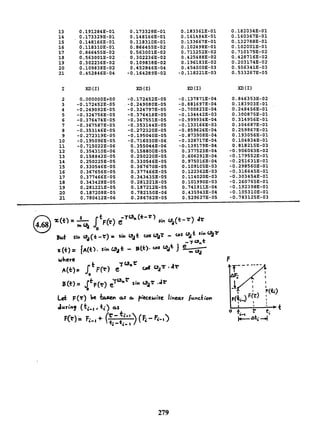 13 0.191284E-01 0.173329E-01 0.183361E-01 0.182034E-01
14 0.173329E-01 0.148166E-01 0.161484E-01 0.160367E-01
15 0.148166E-01 0.118310E-01 0.133667E-01 0.132768E-01
16 0.118310E-01 0.866455E-02 0.102698E-01 0.102001E-01
17 0.866455E-02 0.563001E-02 0.713252E-02 0.710175E-02
18 0.563001E-02 0.302236E-02 0.435488E-02 0.428716E-02
19 0.302236E-02 0.108838E-02 0.196183E-02 0.203174E-02
20 0.108838E-02 0.452864E-04 0.454003E-03 0.556341E-03
21 0.452866E-04 -0.164280E-02 -0.118221E-03 0.553267E-05
I XD(I) XD(I) XD(I) XD(I)
2 0.000000E+00 -0.172452E-05 -0.137871E-04 0.846353E-02
3 -0.172452E-05 -0.249082E-05 -0.481697E-04 0.183903E-01
4 -0.249082E-05 -0.324797E-05 -0.700823E-04 0.248456E-01
5 -0.324756E-05 -0.376418E-05 -0.134441E-03 0.300875E-01
6 -0.376474E-05 -0.367551E-05 -0.999934E-04 0.314956E-01
7 -0.367587E-05 -0.353144E-05 -0.133166E-04 0.316467E-01
8 -0.353146E-05 -0.272120E-05 -0.858626E-04 0.259847E-01
9 -0.272119E-05 -0.195046E-05 -0.873090E-04 0.193056E-01
10 -0.195096E-05 -0.716502E-04 -0.328717E-04 0.106834E-01
11 -0.715022E-06 0.355046E-04 -0.139179E-04 0.818215E-03
12 0.354310E-06 0.158800E-05 0.377523E-04 -0.956069E-02
13 0.158842E-05 0.250220E-05 0.606291E-04 -0.179532E-01
14 0.250225E-05 0.330546E-05 0.975016E-04 -0.251631E-01
15 0.330546E-05 0.367670E-05 0.109105E-03 -0.298560E-01
16 0.367656E-05 0.377466E-05 0.122362E-03 -0.316645E-01
17 0.377466E-05 0.343433E-05 0.114620E-03 -0.303454E-01
18 0.343428E-05 0.281221E-05 0.101990E-03 -0.260765E-01
19 0.281221E-05 0.187212E-05 0.741911E-04 -0.192338E-01
20 0.187208E-05 0.782150E-06 0.435943E-04 -0.105310E-01
21 0.780412E-06 0.284762E-05 0.529627E-05 -0.783125E-03
4.68 x(t) = 1/(m ω_d) ∫₀ᵗ F(τ) e^{-γω_n(t-τ)} sin ω_d(t-τ) dτ
But sin ω_d(t-τ) = sin ω_d t cos ω_d τ - cos ω_d t sin ω_d τ
x(t) = {A(t). sin ω_d t - B(t). cos ω_d t} e^{-γω_n t}/(m ω_d)
where
A(t) = ∫₀ᵗ F(τ) e^{γω_n τ} cos ω_d τ . dτ
B(t) = ∫₀ᵗ F(τ) e^{γω_n τ} sin ω_d τ . dτ
Let F(τ) be taken as a piecewise linear function
during (t_{i-1}, t_i) as
F(τ) = F_{i-1} + ((τ - t_{i-1})/(t_i - t_{i-1})) (F_i - F_{i-1})
F
ΔF_i
F(t_{i-1}) F(τ) F(t_i)
0 t_{i-1} τ t_i t
Δt_i
279